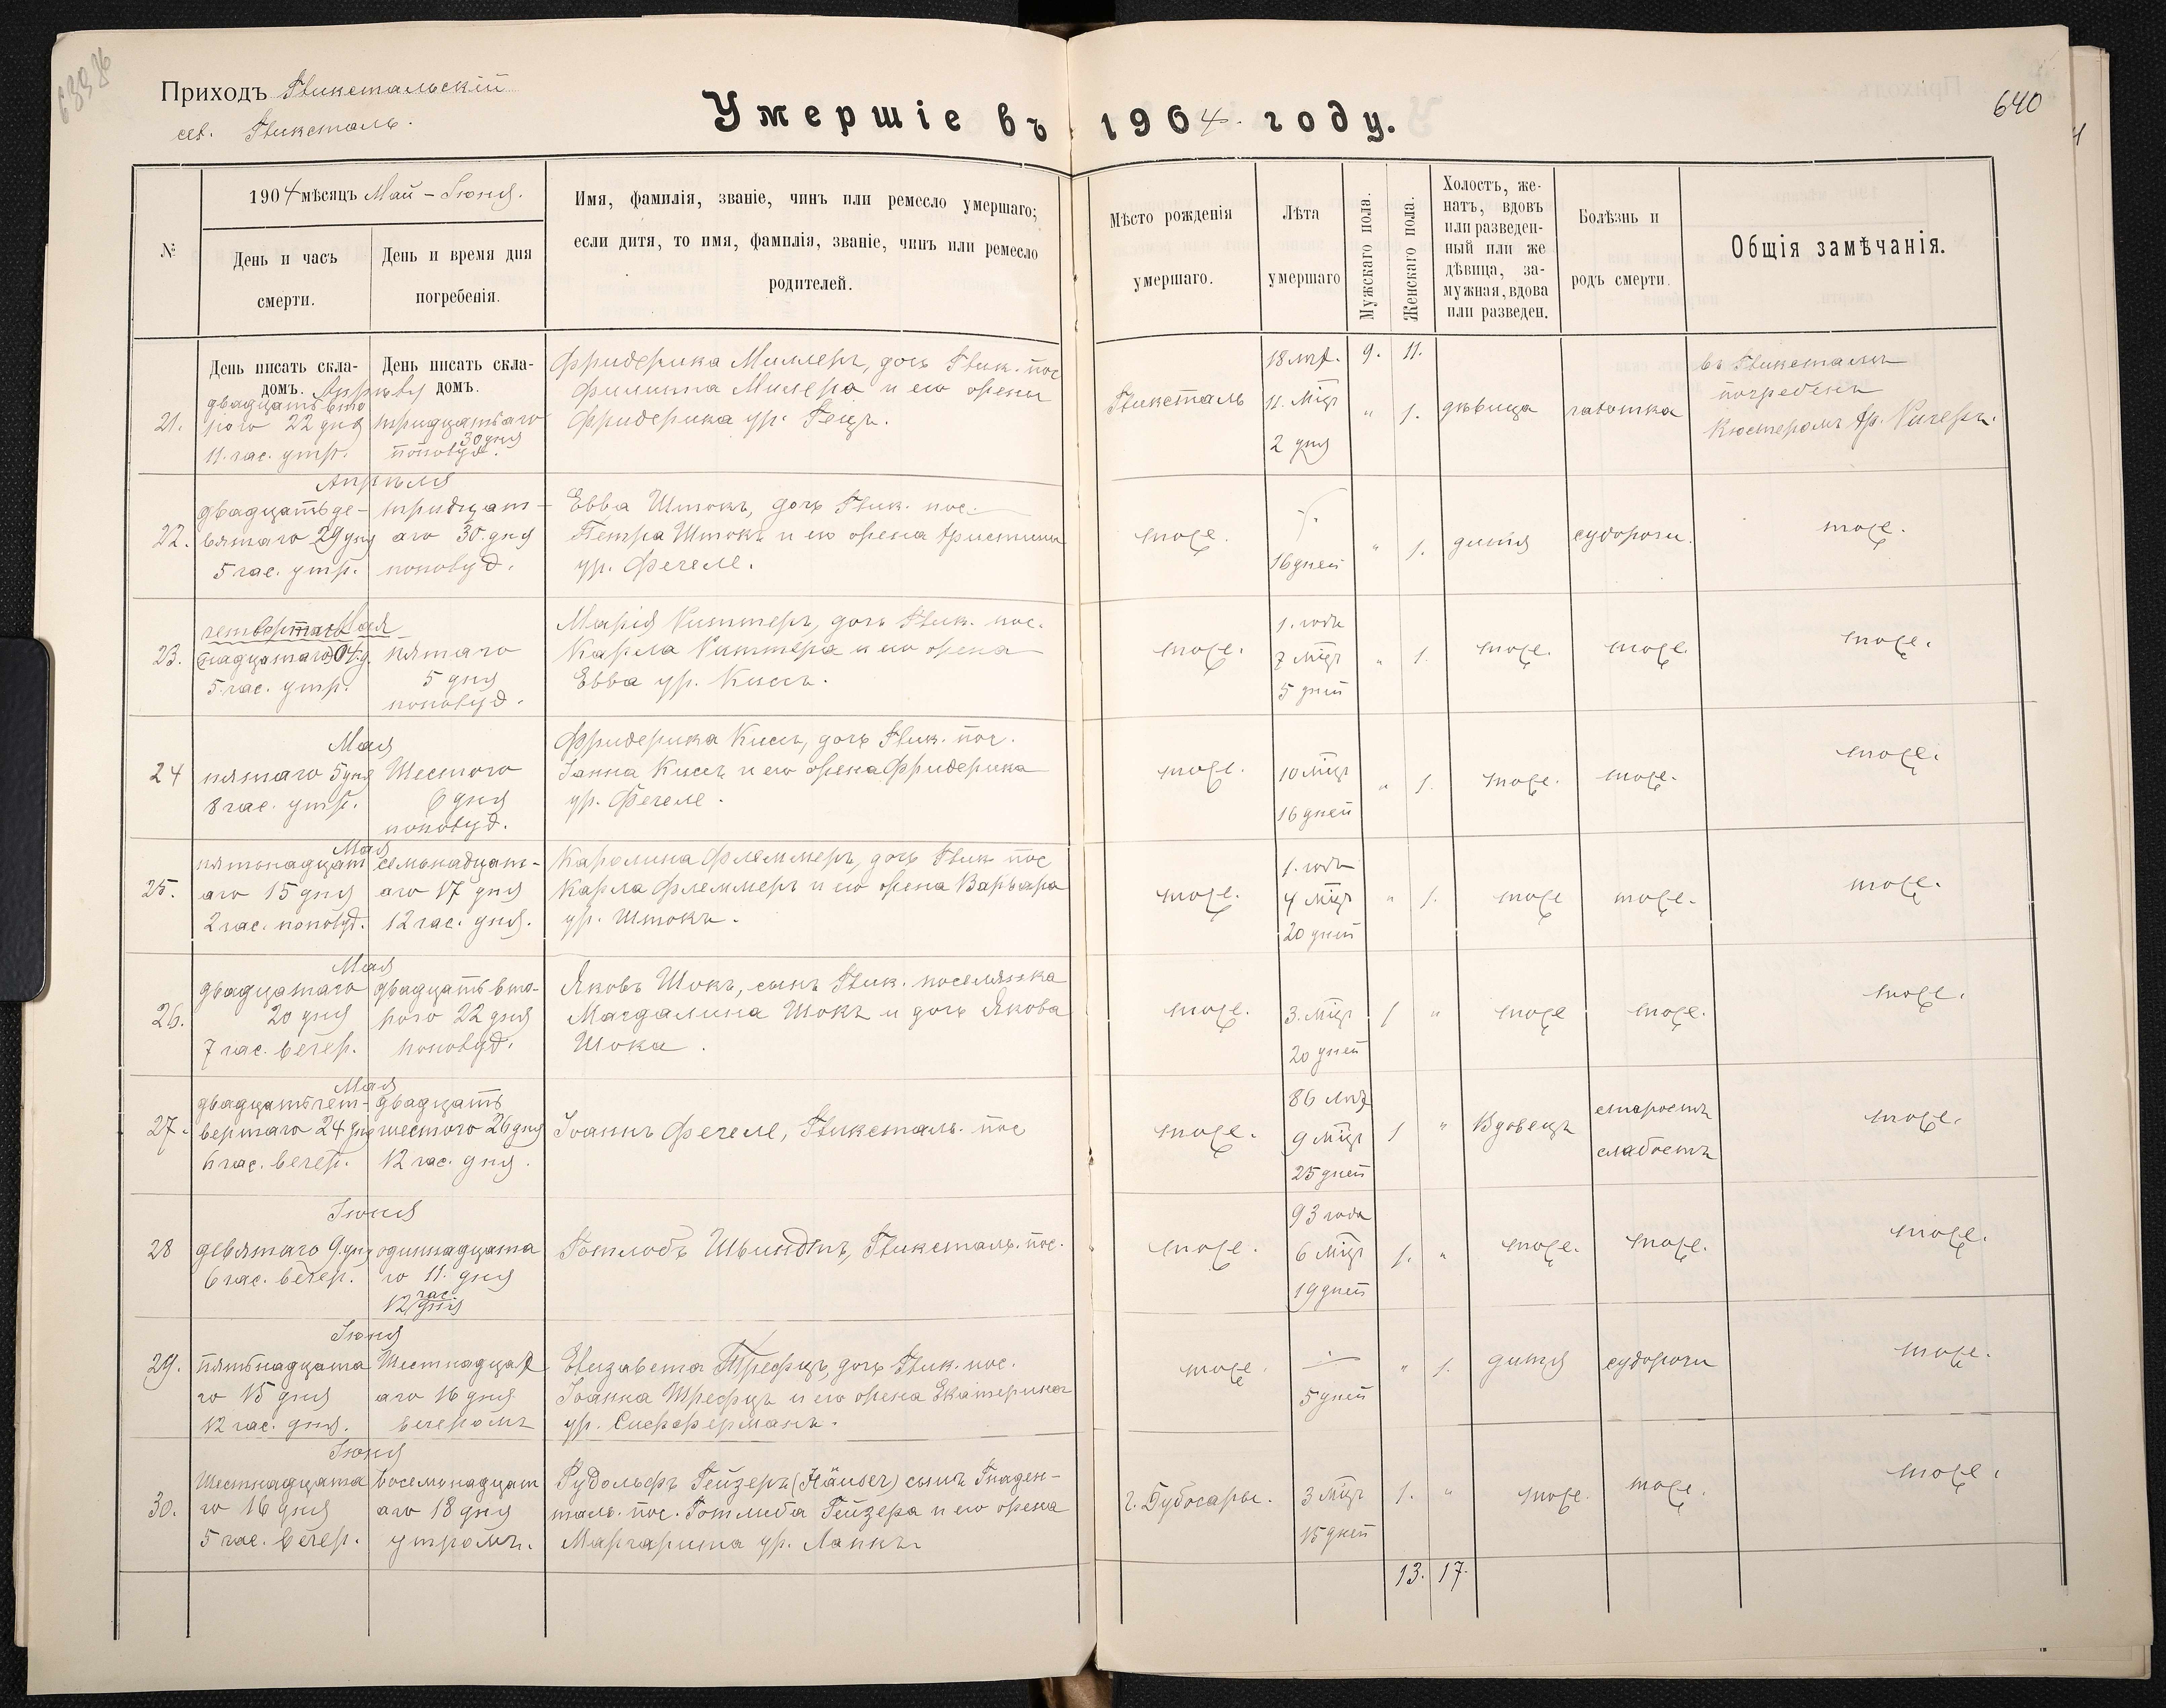 Приходъ Глюкстальскій
сел. Глюксталь.
Умершіе въ 1904. году.
640
№
1904 мѣсяцъ Май – Іюня.
День и часъ
смерти.
День и время дня
погребенія.
Имя, фамилія, званіе, чинъ или ремесло умершаго;
если дитя, то имя, фамилія, званіе, чинъ или ремесло
родителей.
Мѣсто рожденія
умершаго.
Лѣта
умершаго
Мужскаго пола.
Женскаго пола.
Холостъ, же-
натъ, вдовъ
или разведен-
ный или же
дѣвица, за-
мужная, вдова
или разведен.
Болѣзнь и
родъ смерти.
Общія замѣчанія.
День писать скла-
домъ.
День писать скла-
домъ.
9. 11.
Апрѣля
21.
двадцать вто
раго 22 дня
11. час. утр.
тридцатаго
30 дня
пополуд.
Фридерика Миллеръ, дочь Глюк. пос
Филиппа Миллера и его жены
Фридерика ур. Гецъ.
Глюксталь
18 лѣт.
11. мѣц
2 дня
" 1.
дѣвица
чахотка
въ Глюксталь
погребенъ
Кюстеромъ Фр.
Апрѣля
22.
двадцать де-
вятаго 29 дня
5 час. утр.
тридцат-
аго 30. дня
пополуд.
Евва Штокъ, дочь Глюк. пос.
Петра Штокъ и его жена Христины
ур. Фегеле.
тоже.
16 дней
" 1.
дитя
судороги.
тоже.
Мая
23.
5 час. утр.
пятаго
5 дня
пополуд.
Марія Риттеръ, дочь Глюк. пос.
Карла Риттера и его жена
Евва ур. Киссъ.
тоже.
1. годъ
7 мѣц
5 дней
" 1.
тоже.
тоже.
тоже.
Мая
24
пятаго 5 дня
8 час. утр.
Шестого
6 дня
пополуд.
Фридерика Киссъ, дочь Глюк. пос.
Іоанна Киссъ и его жена Фридерика
ур. Фегеле.
тоже.
10 мѣц
16 дней
" 1.
тоже.
тоже.
тоже.
Мая
25.
пятьнадцат
аго 15 дня
2 час. пополуд.
семьнадцат-
аго 17 дня
12 час. дня.
Каролина Флеммеръ, дочь Глюк пос
Карла Флеммеръ и его жена Варвара
ур. Штокъ.
тоже.
1. годъ
4 мѣц
20 дней
" 1.
тоже
тоже.
тоже.
Мая
26.
двадцатаго
20 дня
7 час. вечер.
двадцать вто-
раго 22 дня
пополуд.
Яковъ Шокъ, сынъ Глюк. поселянка
Магдалина Шокъ и дочь Якова
Шока.
тоже.
3. мѣц
20 дней
1 "
тоже
тоже.
тоже.
Мая
27.
двадцать чет-
вертаго 24 дня
6 час. вечер.
двадцать
шестого 26 дня
12 час. дня.
Іоаннъ Фегеле, Глюксталь. пос
тоже.
86 лѣт
9 мѣц
25 дней
1 "
Вдовецъ
старость
слабость
тоже.
Іюня
28
девятаго 9. дня
6 час. вечер.
одиннадцата
го 11. дня
12 час. дня
Готлобъ Швиндтъ, Глюксталь. пос.
тоже.
93 года
6 мѣц
19 дней
1. "
тоже.
тоже.
тоже.
Іюня
29.
пятьнадцата
го 15 дня
12 час. дня.
Шестнадцат
аго 16 дня
вечеромъ
Елизавета Трефцъ, дочь Глюк. пос.
Іоанна Трефцъ и его жена Екатерина
ур.
тоже.
5 дней
" 1.
дитя
судороги
тоже.
Іюня
30.
Шестнадцата
го 16 дня
5 час. вечер.
восемьнадцат
аго 18 дня
утромъ.
Рудольфъ Гейзеръ (Häuser) сынъ Гнаден-
таль. пос. Готлиба Гейзера и его жена
Маргарита ур. Ланкъ.
г. Дубосары.
3 мѣц
15 дней
1. "
тоже.
тоже.
тоже.
13. 17.